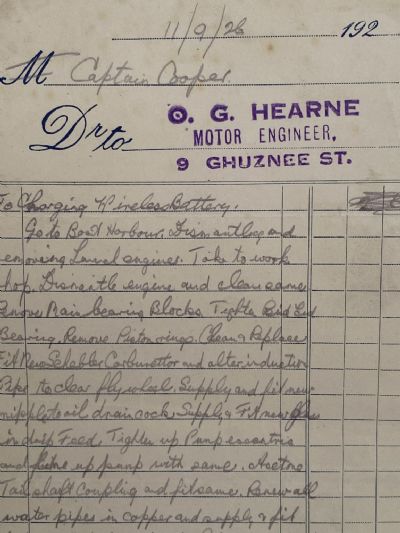 11/9/26 192
M Captain Cooper.
Dr to
O. G. HEARNE
MOTOR ENGINEER,
9 GHUZNEE ST.
To Charging Wireless Battery.
Go to Boat Harbour, Dismantling and
emoving Launch engines. Take to work
hop. Dismantle engine and clean same
emove Main bearing Blocks, Tighten Big End
Bearing. Remove Piston rings. Clean & Replace
Fit New Schebler Carburettor and alter induction
Pipe to clear flywheel. Supply and fit new
nipple to oil drain cock. Supply & Fit new glass
in drip Feed. Tighten up Pump eccentric
and line up pump with same.
Tail shaft Coupling and fit same. Renew all
water pipes in copper and supply & fit